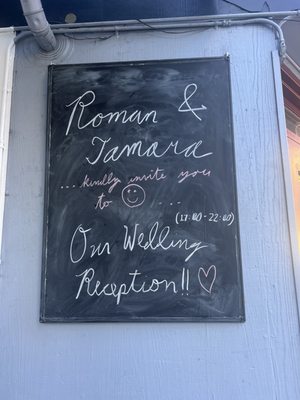 Roman &
Tamara
...kindly invite you
to ☺ ...
(17:00-22:00)
Our Wedding
Reception!! ♡